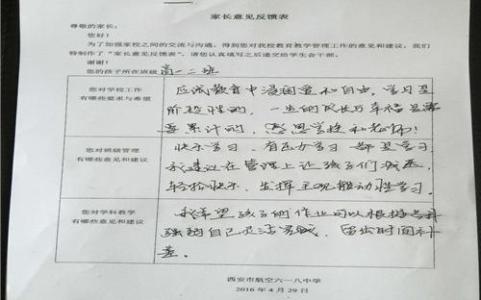 家长意见反馈表
尊敬的家长:
您好!
为了加强家校之间的交流与沟通,得到您对我校教育教学管理工作的意见和建议,我们
特制作了“家长意见反馈表”,请您认真填写之后递交给学生会干部。
谢谢!
您的孩子所在班级 高一二班
您对学校工作
有哪些要求与希望
应试教育中浸润着和自由,学习是
阶段性的,一生的成长与幸福是需
要累计的,感恩学校和老师!
您对班级管理
有哪些意见和建议
快乐学习,有压力学习都是学习
我建议在管理上让孩子们减压,
轻松快乐,发挥主观能动性学习。
您对学科教学
有哪些意见和建议
我希望孩子的作业可以根据各科
强弱自己灵活完成,留出时间补
差。
西安市航空六一八中学
2016 年 4 月 29 日